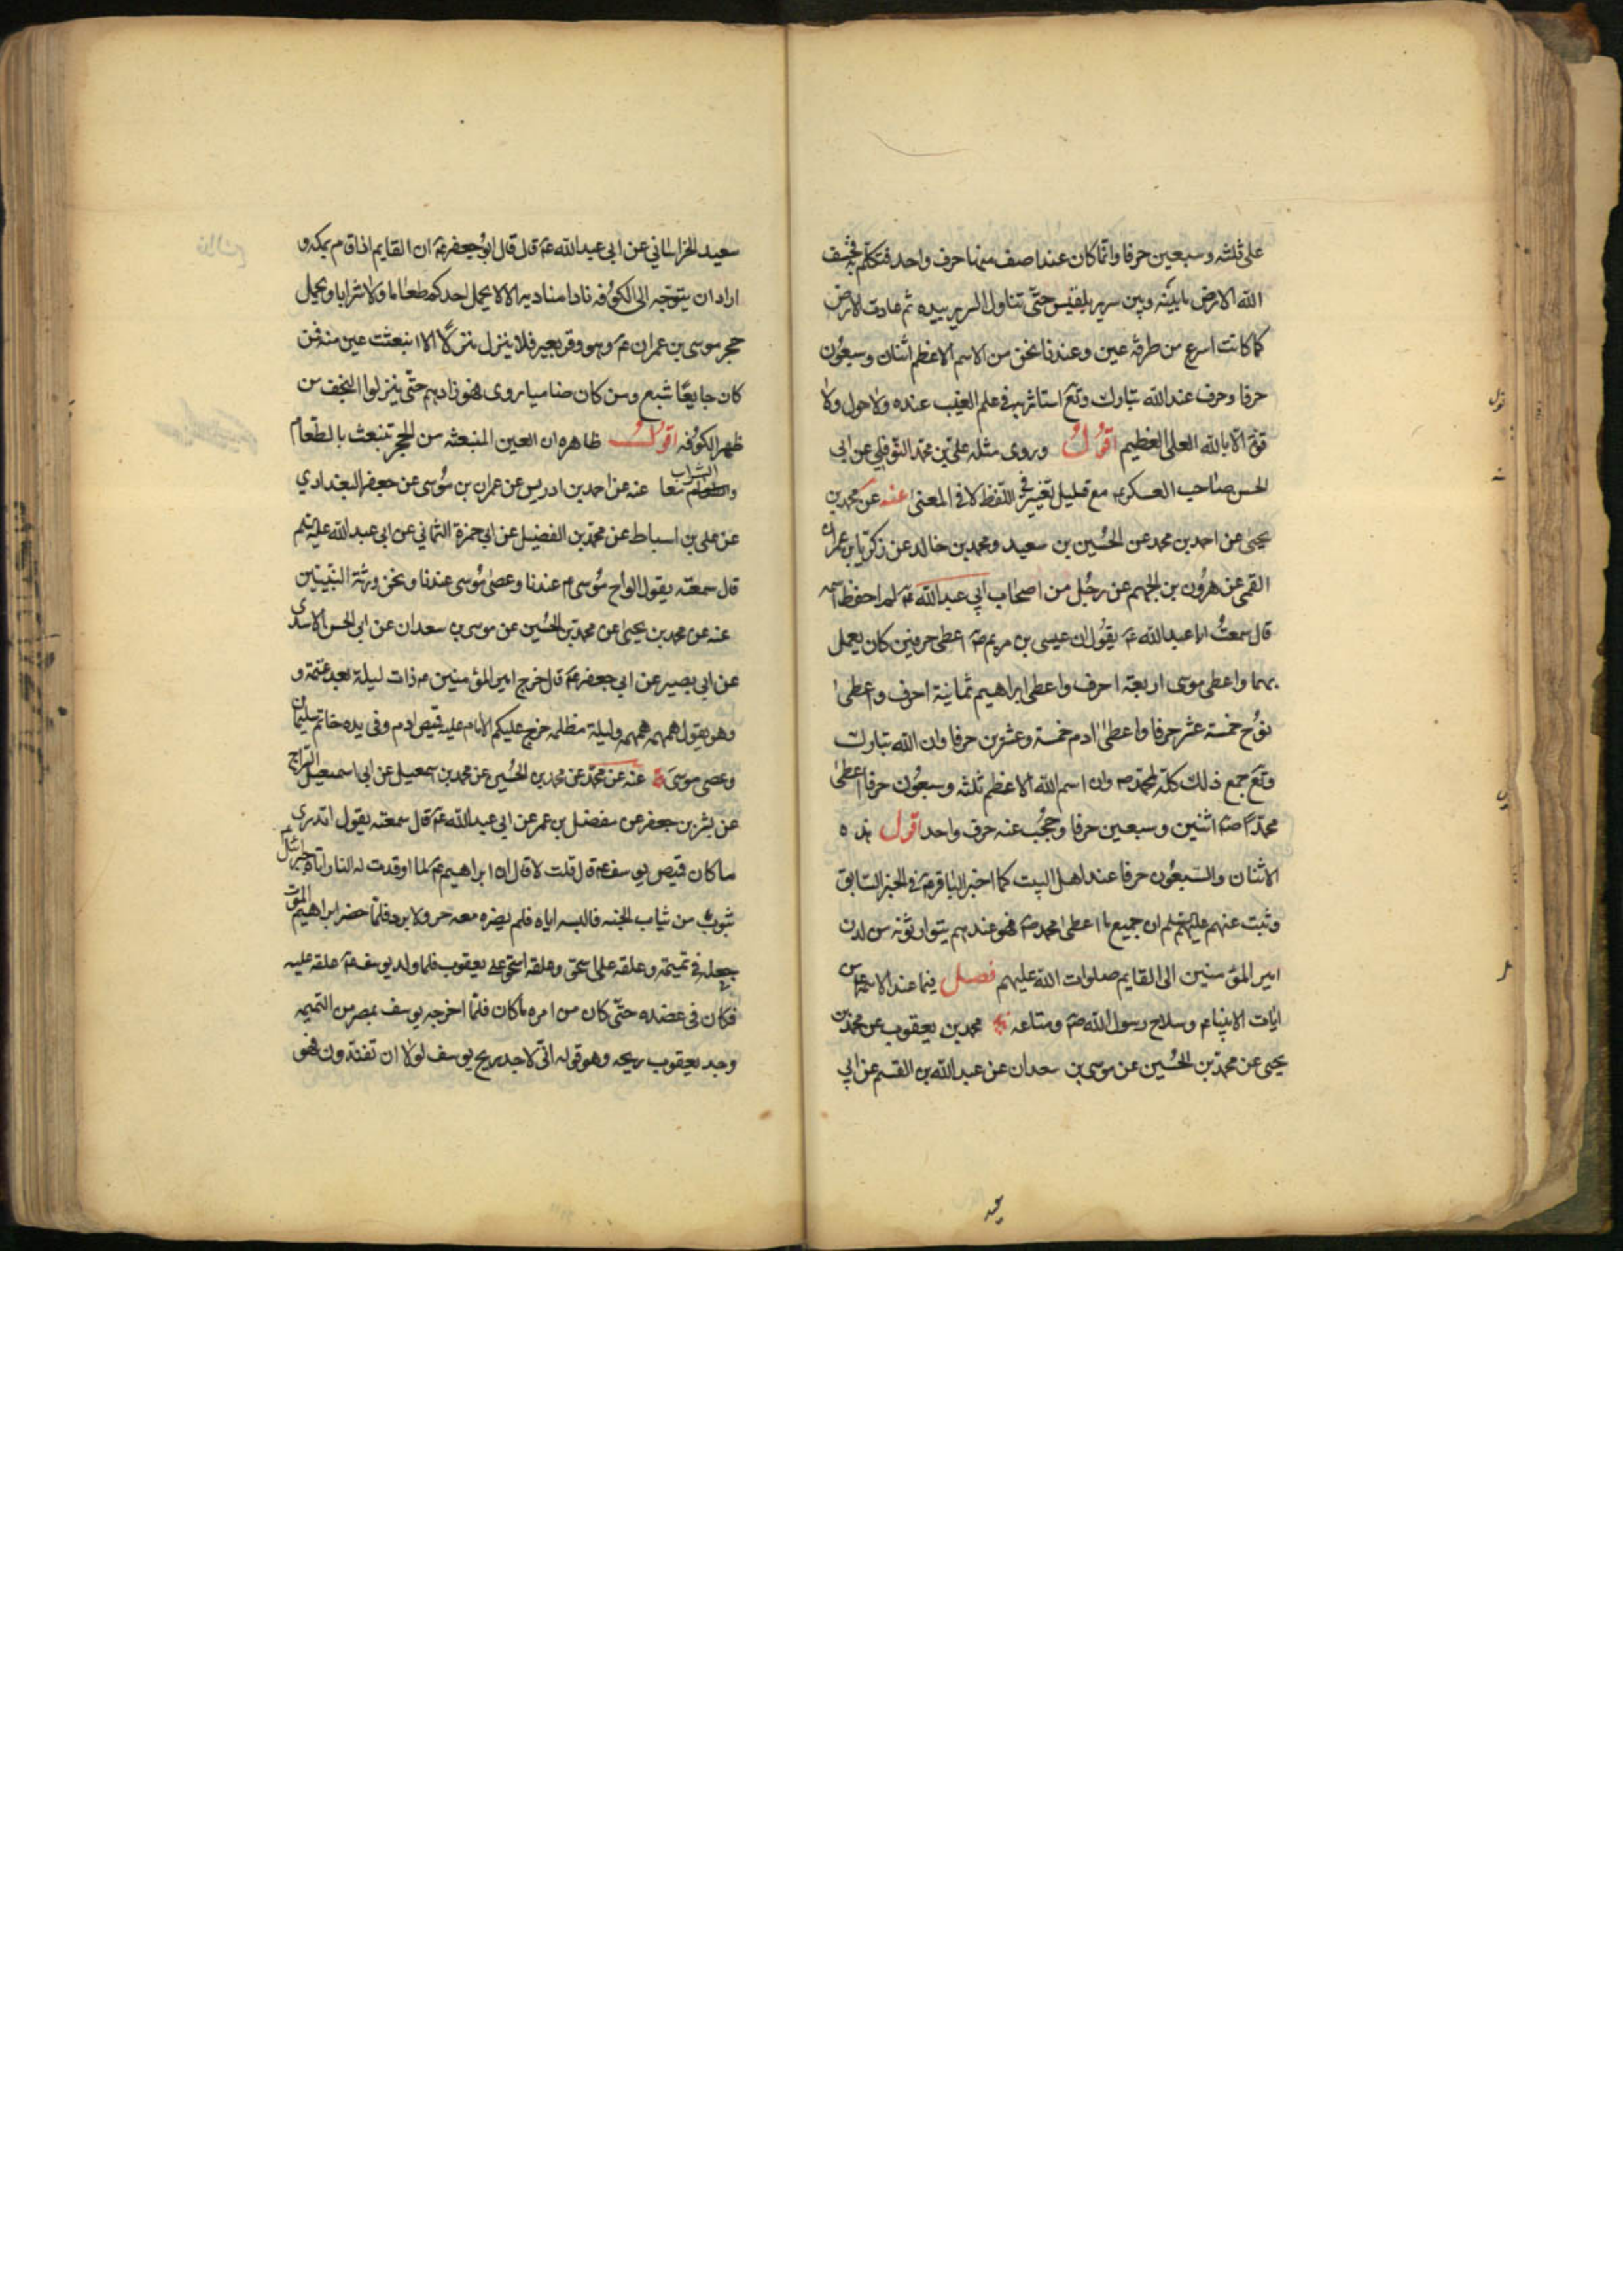 على ثلثه وسبعين حرفا وانما كان عند اصف منها حرف واحد فتكلم به فخسف
الله الارض ما بينه وبين سرير بلقيس حتى تناول السرير بيده ثم عادت الارض
كما كانت اسرع من طرفة عين وعندنا نحن من الاسم الاعظم اثنان وسبعون
حرفا وحرف عند الله تبارك وتع استاثر به في علم الغيب عنده ولا حول ولا
قوة الا بالله العلي العظيم اقول وروى مثله علي بن محمد النوفلي عن ابي
الحسن صاحب العسكر ع مع قليل تغيير في اللفظ لا في المعنى عنه عن محمد بن
يحيى عن احمد بن محمد عن الحسين بن سعيد ومحمد بن خالد عن زكريا بن عمران
القمي عن هرون بن الجهم عن رجل من اصحاب ابي عبد الله ع لم احفظ اسمه
قال سمعت ابا عبد الله ع يقول ان عيسى بن مريم ع اعطى حرفين كان يعمل
بهما واعطى موسى اربعة احرف واعطى ابراهيم ثمانية احرف واعطى
نوح خمسة عشر حرفا واعطى ادم خمسة وعشرين حرفا وان الله تبارك
وتع جمع ذلك كله لمحمد ص وان اسم الله الاعظم ثلثه وسبعون حرفا اعطى
محمدا ص اثنين وسبعين حرفا وحجب عنه حرف واحد اقول هذه
الاثنان والسبعون حرفا عند اهل البيت كما اخبر الباقر ع في الخبر السابق
وثبت عنهم عليهم السلم ان جميع ما اعطى محمد ص فهو عندهم يتوارثونه من لدن
امير المؤمنين الى القايم صلوات الله عليهم فصل فيما عند الائمة ع من
ايات الانبياء ع وسلاح رسول الله ص ومتاعه محمد بن يعقوب عن محمد بن
يحيى عن محمد بن الحسين عن موسى بن سعدان عن عبد الله بن القسم عن ابي
سعيد الخراساني عن ابي عبد الله ع قال قال ابو جعفر ع ان القايم اذا قام بمكه و
اراد ان يتوجه الى الكوفه نادا مناديه الا لا يحمل احد كم طعاما ولا شرابا ويحمل
حجر موسى بن عمران ع وهو وقر بعير فلا ينزل منزلا الا انبعثت عين منه فمن
كان جايعا شبع ومن كان ضاميا روى فهو زادهم حتى ينزلوا النجف من
ظهر الكوفه اقول ظاهره ان العين المنبعثه من الحجر تنبعث بالطعام
والشراب معا عنه عن احمد بن ادريس عن عمران بن موسى عن جعفر البغدادي
عن علي بن اسباط عن محمد بن الفضيل عن ابي حمزة الثمالي عن ابي عبد الله عليه السلم
قال سمعته يقول الواح موسى ع عندنا وعصى موسى عندنا ونحن ورثة النبيين
عنه عن محمد بن يحيى عن محمد بن الحسين عن موسى بن سعدان عن ابي الحسن الاسدي
عن ابي بصير عن ابي جعفر ع قال خرج امير المؤمنين ع ذات ليلة بعد عتمة و
وهو يقول همهمه همهمه وليلة مظلمه خرج عليكم الامام عليه قميص ادم وفي يده خاتم سليمان
وعصى موسى ع عنه عن محمد عن محمد بن الحسين عن محمد بن اسمعيل عن ابي اسمعيل السراج
عن بشر بن جعفر عن مفضل بن عمر عن ابي عبد الله ع قال سمعته يقول اتدري
ما كان قميص يوسف ع قال قلت لا قال ان ابراهيم ع لما اوقدت له النار اتاه جبرائيل ع
بثوب من ثياب الجنه فالبسه اياه فلم يضره معه حر ولا برد فلما حضر ابراهيم الموت
جعله في تميمة وعلقه على اسحق وعلقه اسحق على يعقوب فلما ولد يوسف ع علقه عليه
فكان في عضده حتى كان من امره ما كان فلما اخرجه يوسف بمصر من التميمه
وجد يعقوب ريحه وهو قوله اني لاجد ريح يوسف لولا ان تفندون فهو